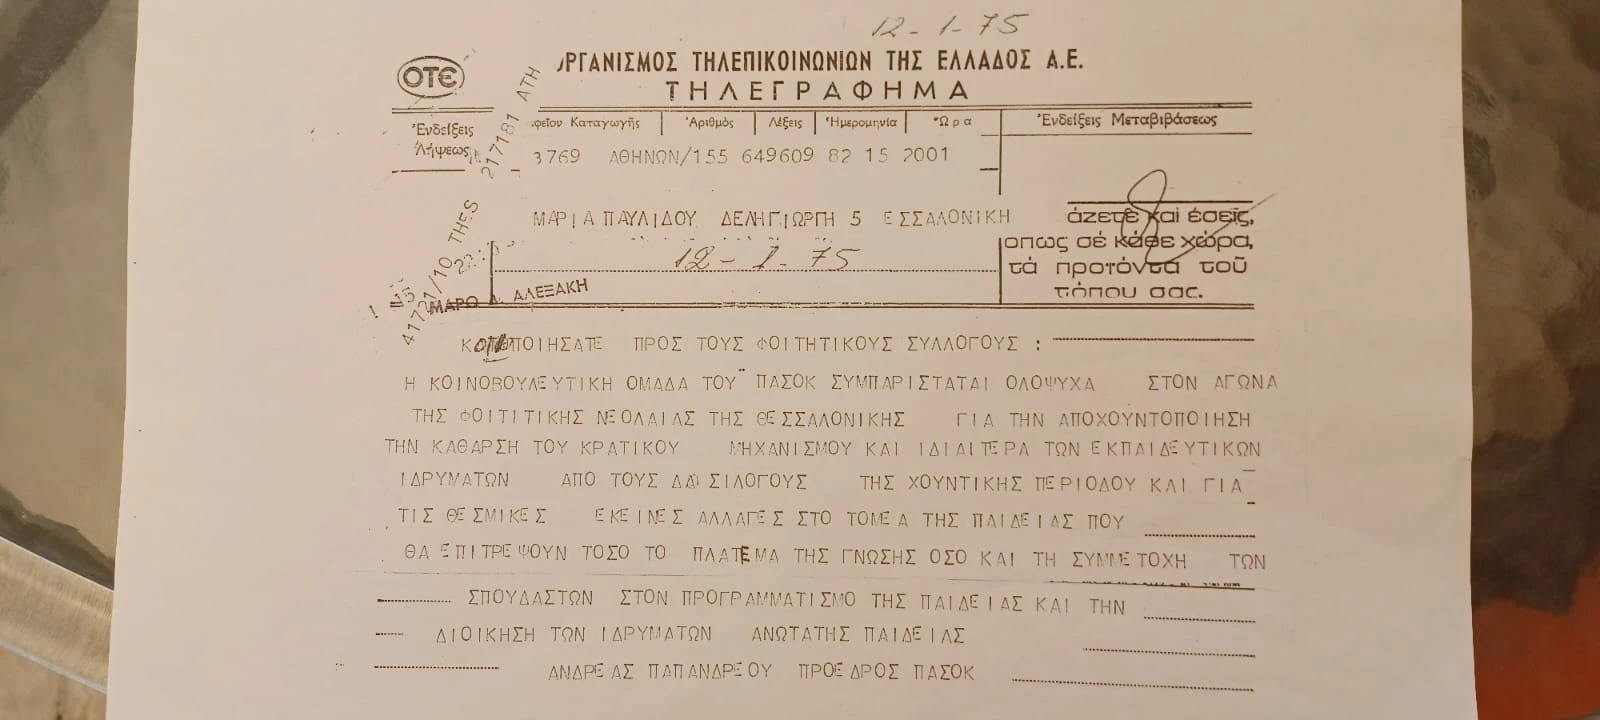 12-1-75
ΟΤΕ
ΡΓΑΝΙΣΜΟΣ ΤΗΛΕΠΙΚΟΙΝΩΝΙΩΝ ΤΗΣ ΕΛΛΑΔΟΣ Α.Ε.
ΤΗΛΕΓΡΑΦΗΜΑ
Ἐνδείξεις Λήψεως
φεῖον Καταγωγῆς Ἀριθμός Λέξεις Ἡμερομηνία Ὥρα
Ἐνδείξεις Μεταβιβάσεως
217181 ΑΤΗ
3769 ΑΘΗΝΩΝ/155 649609 82 15 2001
ΜΑΡΙΑ ΠΑΥΛΙΔΟΥ ΔΕΛΗΓΙΩΡΓΗ 5 ΕΣΣΑΛΟΝΙΚΗ
12-1-75
άζετε καί ἐσεῖς,
οπως σέ κάθε χώρα,
τά προτόντα τοῦ
τόπου σας.
41721/10 THES
ΜΑΡΩ Δ. ΑΛΕΞΑΚΗ
ΚΟΙΝΟΠΟΙΗΣΑΤΕ ΠΡΟΣ ΤΟΥΣ ΦΟΙΤΗΤΙΚΟΥΣ ΣΥΛΛΟΓΟΥΣ :
Η ΚΟΙΝΟΒΟΥΛΕΥΤΙΚΗ ΟΜΑΔΑ ΤΟΥ ΠΑΣΟΚ ΣΥΜΠΑΡΙΣΤΑΤΑΙ ΟΛΟΨΥΧΑ ΣΤΟΝ ΑΓΩΝΑ
ΤΗΣ ΦΟΙΤΙΤΙΚΗΣ ΝΕΟΛΑΙΑΣ ΤΗΣ ΘΕΣΣΑΛΟΝΙΚΗΣ ΓΙΑ ΤΗΝ ΑΠΟΧΟΥΝΤΟΠΟΙΗΣΗ
ΤΗΝ ΚΑΘΑΡΣΗ ΤΟΥ ΚΡΑΤΙΚΟΥ ΜΗΧΑΝΙΣΜΟΥ ΚΑΙ ΙΔΙΑΙΤΕΡΑ ΤΩΝ ΕΚΠΑΙΔΕΥΤΙΚΩΝ
ΙΔΡΥΜΑΤΩΝ ΑΠΟ ΤΟΥΣ ΔΩΣΙΛΟΓΟΥΣ ΤΗΣ ΧΟΥΝΤΙΚΗΣ ΠΕΡΙΟΔΟΥ ΚΑΙ ΓΙΑ
ΤΙΣ ΘΕΣΜΙΚΕΣ ΕΚΕΙΝΕΣ ΑΛΛΑΓΕΣ ΣΤΟ ΤΟΜΕΑ ΤΗΣ ΠΑΙΔΕΙΑΣ ΠΟΥ
ΘΑ ΕΠΙΤΡΕΨΟΥΝ ΤΟΣΟ ΤΟ ΠΛΑΤΕΜΑ ΤΗΣ ΓΝΩΣΗΣ ΟΣΟ ΚΑΙ ΤΗ ΣΥΜΜΕΤΟΧΗ ΤΩΝ
ΣΠΟΥΔΑΣΤΩΝ ΣΤΟΝ ΠΡΟΓΡΑΜΜΑΤΙΣΜΟ ΤΗΣ ΠΑΙΔΕΙΑΣ ΚΑΙ ΤΗΝ
ΔΙΟΙΚΗΣΗ ΤΩΝ ΙΔΡΥΜΑΤΩΝ ΑΝΩΤΑΤΗΣ ΠΑΙΔΕΙΑΣ
ΑΝΔΡΕΑΣ ΠΑΠΑΝΔΡΕΟΥ ΠΡΟΕΔΡΟΣ ΠΑΣΟΚ